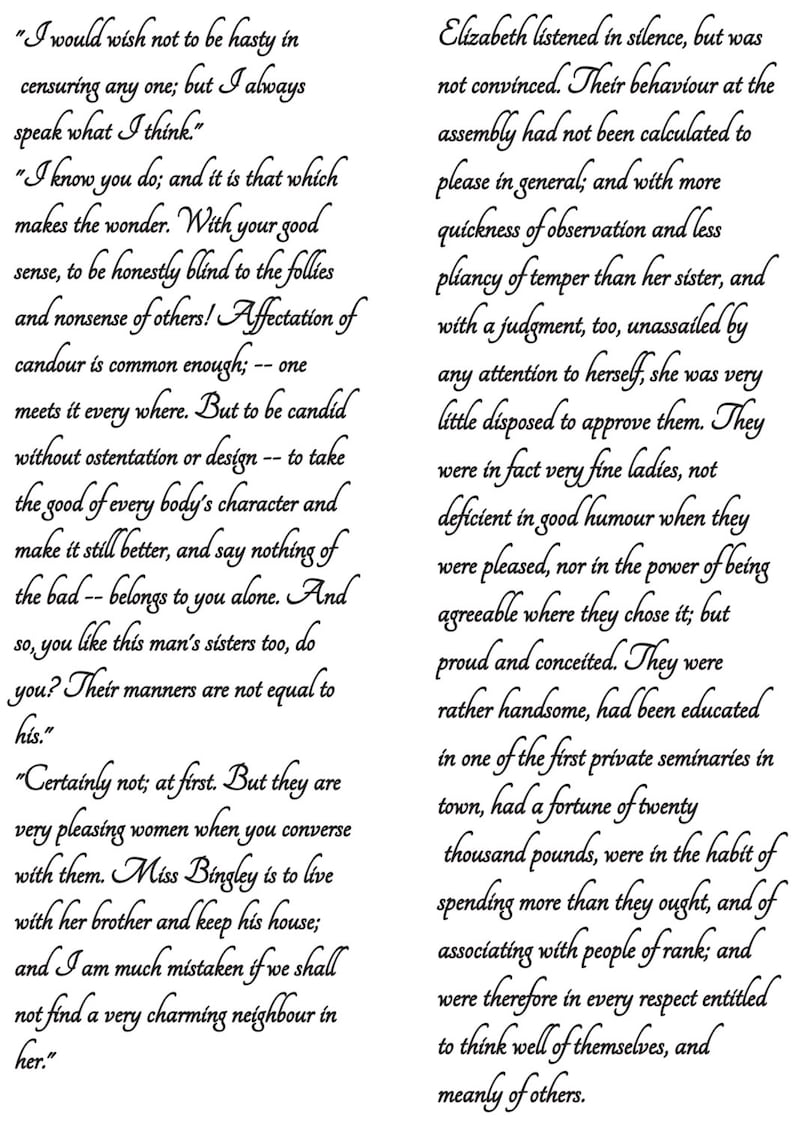 "I would wish not to be hasty in
censuring any one; but I always
speak what I think."
"I know you do; and it is that which
makes the wonder. With your good
sense, to be honestly blind to the follies
and nonsense of others! Affectation of
candour is common enough; -- one
meets it every where. But to be candid
without ostentation or design -- to take
the good of every body's character and
make it still better, and say nothing of
the bad -- belongs to you alone. And
so, you like this man's sisters too, do
you? Their manners are not equal to
his."
"Certainly not; at first. But they are
very pleasing women when you converse
with them. Miss Bingley is to live
with her brother and keep his house;
and I am much mistaken if we shall
not find a very charming neighbour in
her."
Elizabeth listened in silence, but was
not convinced. Their behaviour at the
assembly had not been calculated to
please in general; and with more
quickness of observation and less
pliancy of temper than her sister, and
with a judgment, too, unassailed by
any attention to herself, she was very
little disposed to approve them. They
were in fact very fine ladies, not
deficient in good humour when they
were pleased, nor in the power of being
agreeable where they chose it; but
proud and conceited. They were
rather handsome, had been educated
in one of the first private seminaries in
town, had a fortune of twenty
thousand pounds, were in the habit of
spending more than they ought, and of
associating with people of rank; and
were therefore in every respect entitled
to think well of themselves, and
meanly of others.